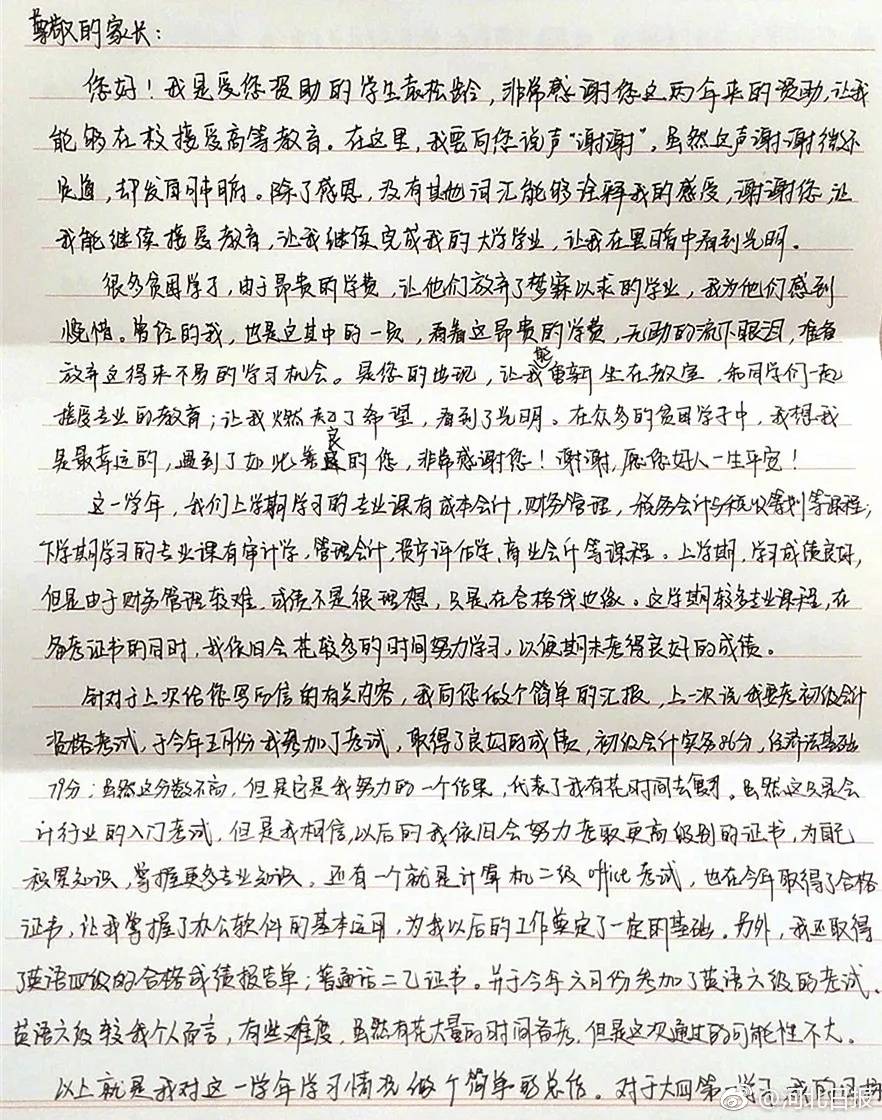 尊敬的家长：
您好！我是受您资助的学生袁松龄，非常感谢您这两年来的资助，让我
能够在校接受高等教育。在这里，我要向您说声“谢谢”，虽然这声谢谢微不
足道，却发自肺腑。除了感恩，没有其他词汇能够诠释我的感受，谢谢您，让
我能继续接受教育，让我继续完成我的大学学业，让我在黑暗中看到光明。
很多贫困学子，由于昂贵的学费，让他们放弃了梦寐以求的学业，我为他们感到
惋惜。曾经的我，也是这其中的一员，看着这昂贵的学费，无助的流下眼泪，准备
放弃这得来不易的学习机会。是您的出现，让我能重新坐在教室，和同学们一起
接受专业的教育；让我燃起了希望，看到了光明。在众多的贫困学子中，我想我
是最幸运的，遇到了如此善良的您，非常感谢您！谢谢，愿您好人一生平安！
这一学年，我们上学期学习的专业课有成本会计，财务管理，税务会计与税收筹划等课程；
下学期学习的专业课有审计学，管理会计，资产评估学、商业会计等课程。上学期，学习成绩良好，
但是由于财务管理较难，成绩不是很理想，只是在合格线边缘。这学期较多专业课程，在
备考证书的同时，我依旧会花较多的时间努力学习，以便期末考得良好的成绩。
针对于上次给您写的信的有关内容，我向您做个简单的汇报，上一次说我要考初级会计
资格考试，于今年五月份我参加了考试，取得了良好的成绩，初级会计实务86分，经济法基础
79分；虽然这分数不高，但是它是我努力的一个结果，代表了我有花时间去复习。虽然这只是会
计行业的入门考试，但是我相信，以后的我依旧会努力考取更高级别的证书，为自己
积累知识，掌握更多专业知识。还有一个就是计算机二级office考试，也在今年取得了合格
证书，让我掌握了办公软件的基本运用，为我以后的工作奠定了一定的基础。另外，我还取得
了英语四级的合格成绩报告单；普通话二乙证书。并于今年六月份参加了英语六级的考试，
英语六级较我个人而言，有些难度，虽然有花大量的时间备考，但是这次通过的可能性不大。
以上就是我对这一学年学习情况做个简单的总结。对于大四第一学
@河北日报